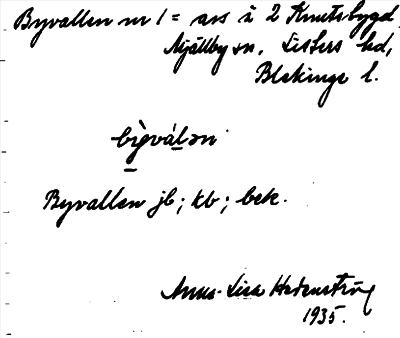 Byvallen nr 1 = avs å 2 Knutsbygd,
Mjällby sn, Listers hd,
Blekinge l.
bỳvál̲ən
Byvallen jb; kb; bek.
Anna-Lisa Hedenström
1935.